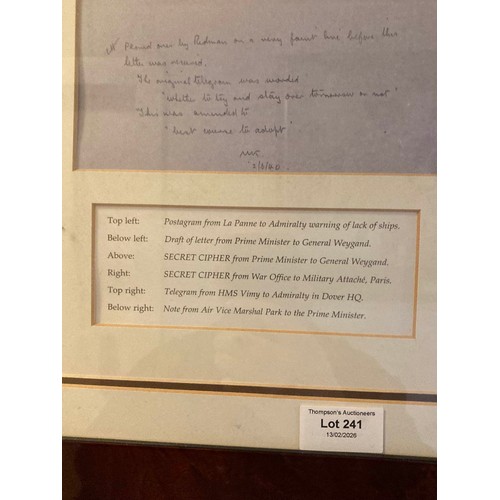 Phoned over by Redman on a very faint line before this
letter was received.
The original telegram was worded
"Whether to try and stay over tomorrow or not"
This was amended to
"best course to adopt"
2/6/40
Top left: Postagram from La Panne to Admiralty warning of lack of ships.
Below left: Draft of letter from Prime Minister to General Weygand.
Above: SECRET CIPHER from Prime Minister to General Weygand.
Right: SECRET CIPHER from War Office to Military Attaché, Paris.
Top right: Telegram from HMS Vimy to Admiralty in Dover HQ.
Below right: Note from Air Vice Marshal Park to the Prime Minister.
Thompson's Auctioneers
Lot 241
13/02/2026